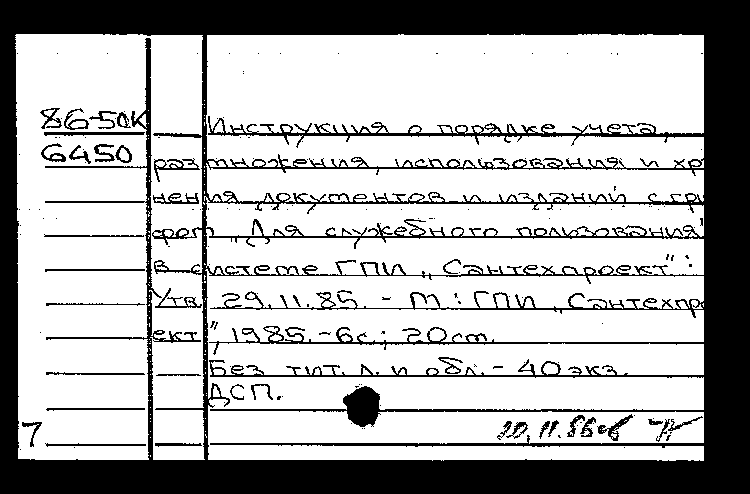 86-50К Инструкция о порядке учета,
6450 размножения, использования и хра
нения документов и изданий с гри
фом „Для служебного пользования"
в системе ГПИ „Сантехпроект":
Утв. 29.11.85. - М.: ГПИ „Сантехпро
ект", 1985. - 6с.; 20 см.
Без тит. л. и обл. - 40 экз.
ДСП.
7 20.11.86